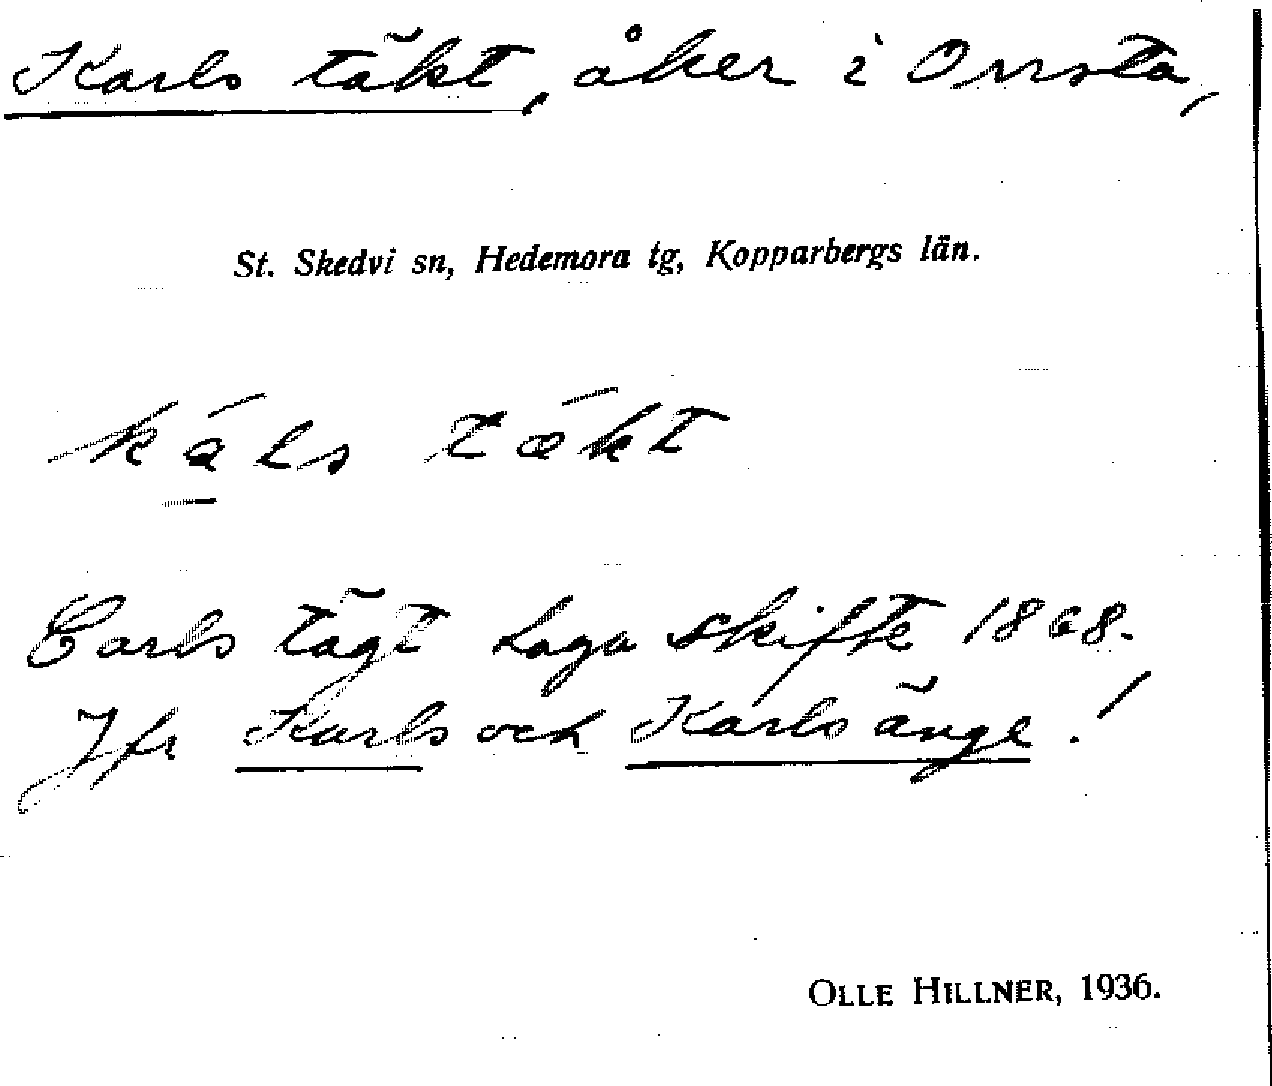 Karls täkt, åker i Orrsta,
St. Skedvi sn, Hedemora tg, Kopparbergs län.
ká̱ls tǽkt
Carls tägt Laga skifte 1868.
Jfr Karls och Karls änge!
OLLE HILLNER, 1936.